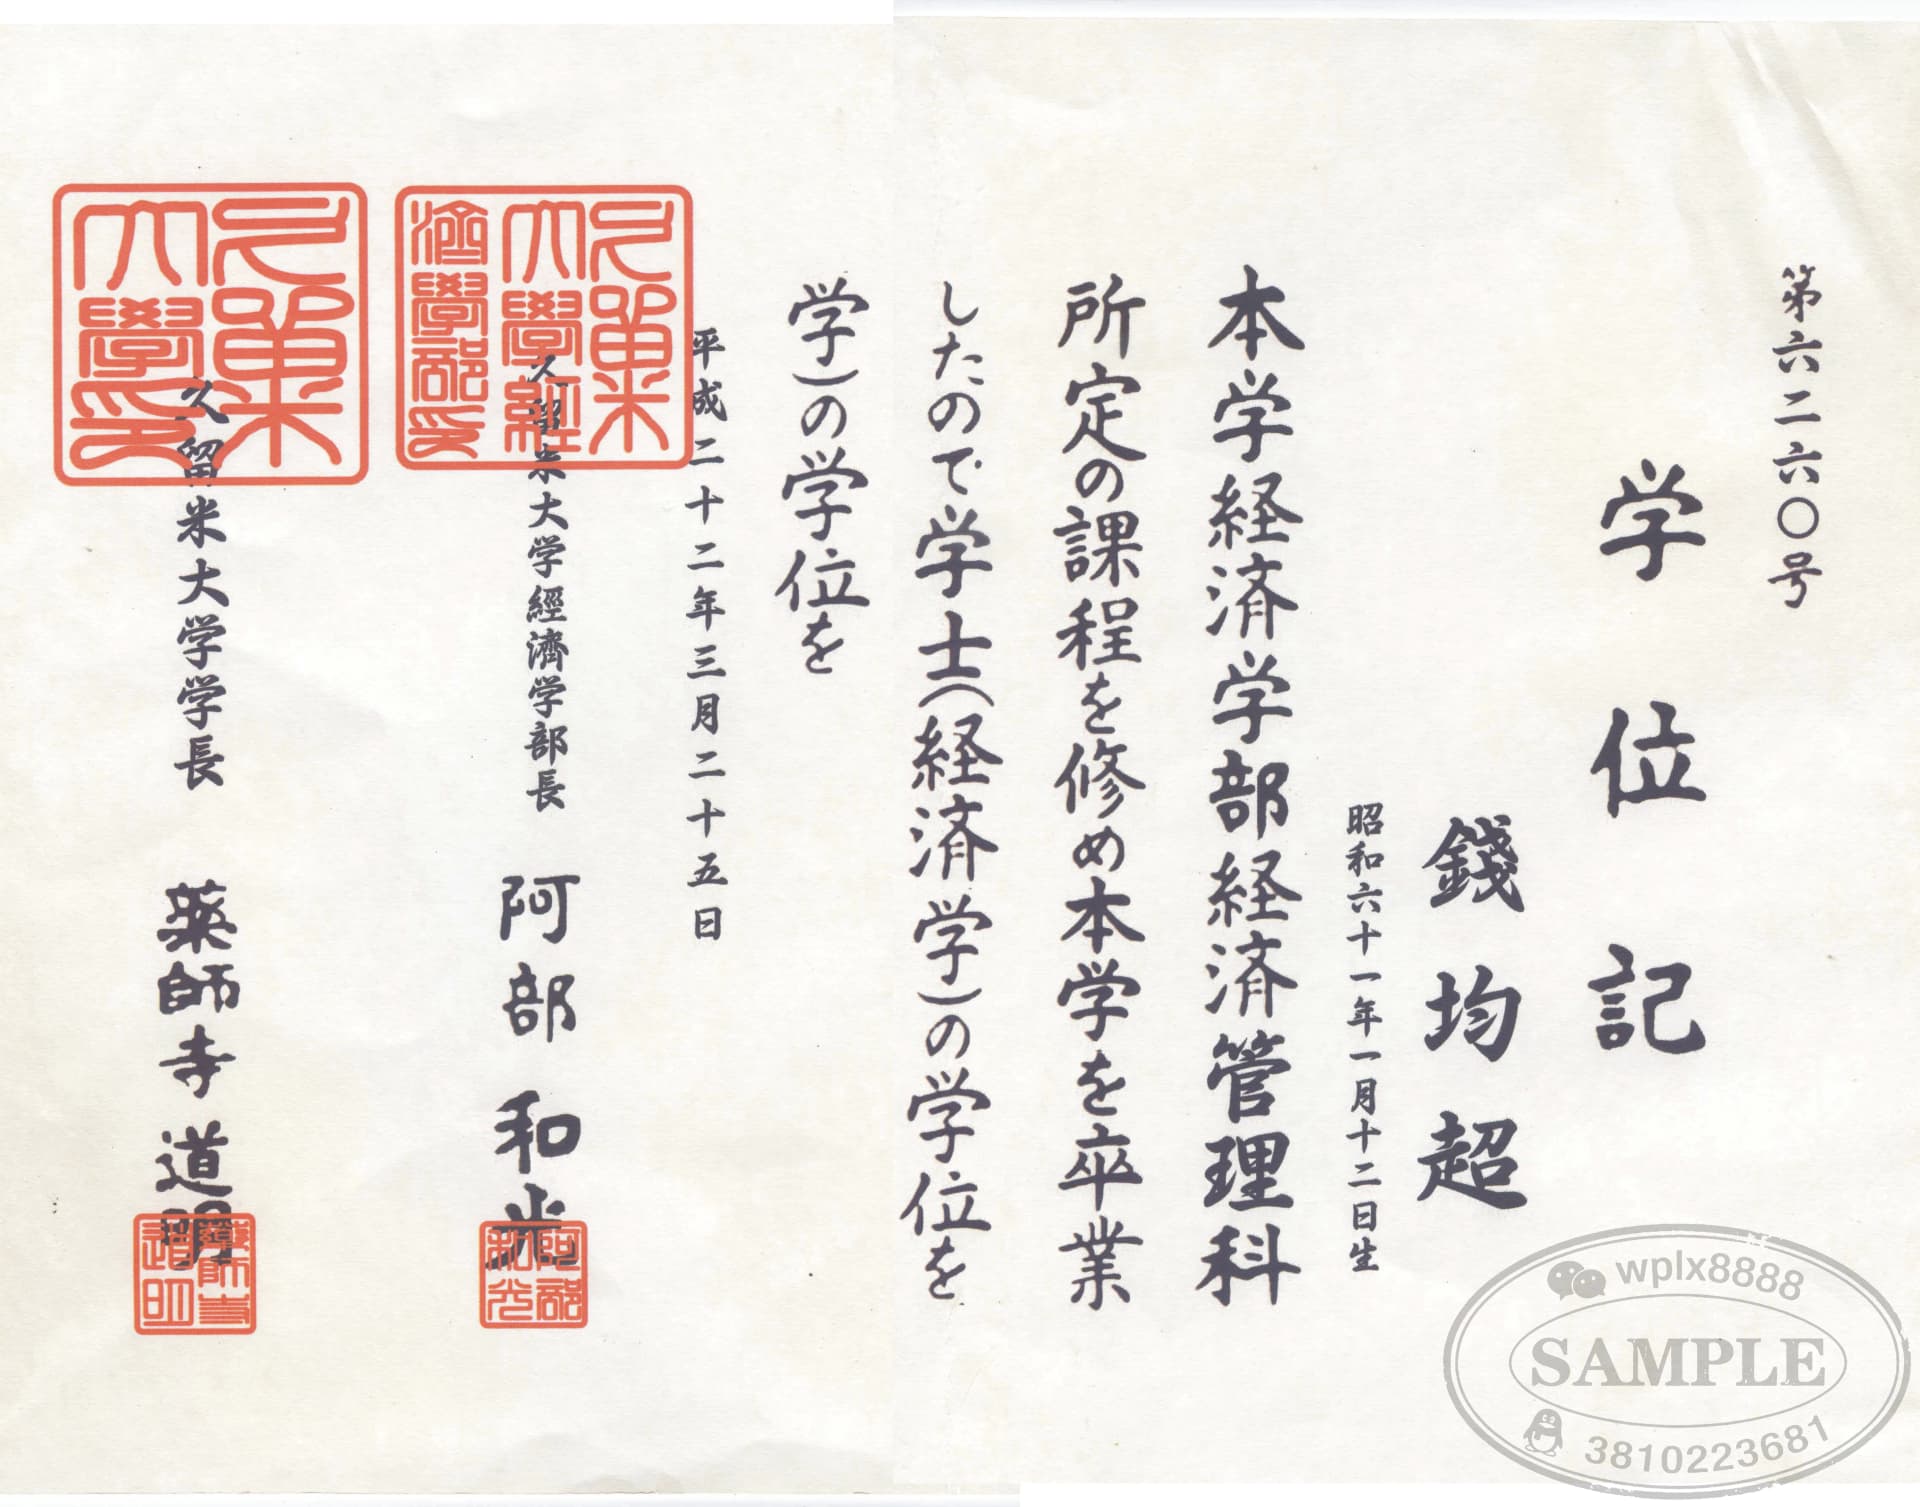 第六二六〇号
学位記
錢均超
昭和六十一年一月十二日生
本学経済学部経済管理科
所定の課程を修め本学を卒業
したので学士(経済学)の学位を
学)の学位を
平成二十二年三月二十五日
久留米大学經濟学部長 阿部和光
久留米大学学長 薬師寺道明
久留米大學経濟學部印
久留米大學印
阿部和光
藥師寺道明
wplx8888
SAMPLE
3810223681